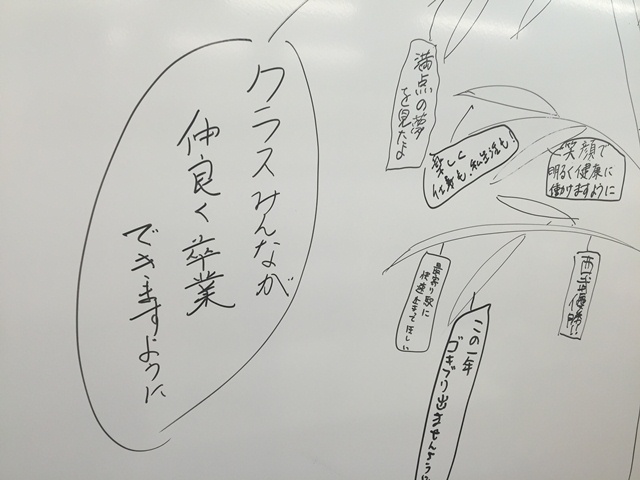 クラスみんなが
仲良く卒業
できますように
満点の夢
を見たよ
楽しく
仕事も、私生活も!
笑顔で
明るく健康に
働けますように
最寄り駅に
快速止まってほしい
この一年
ゴキブリ出ませんように
優勝!!